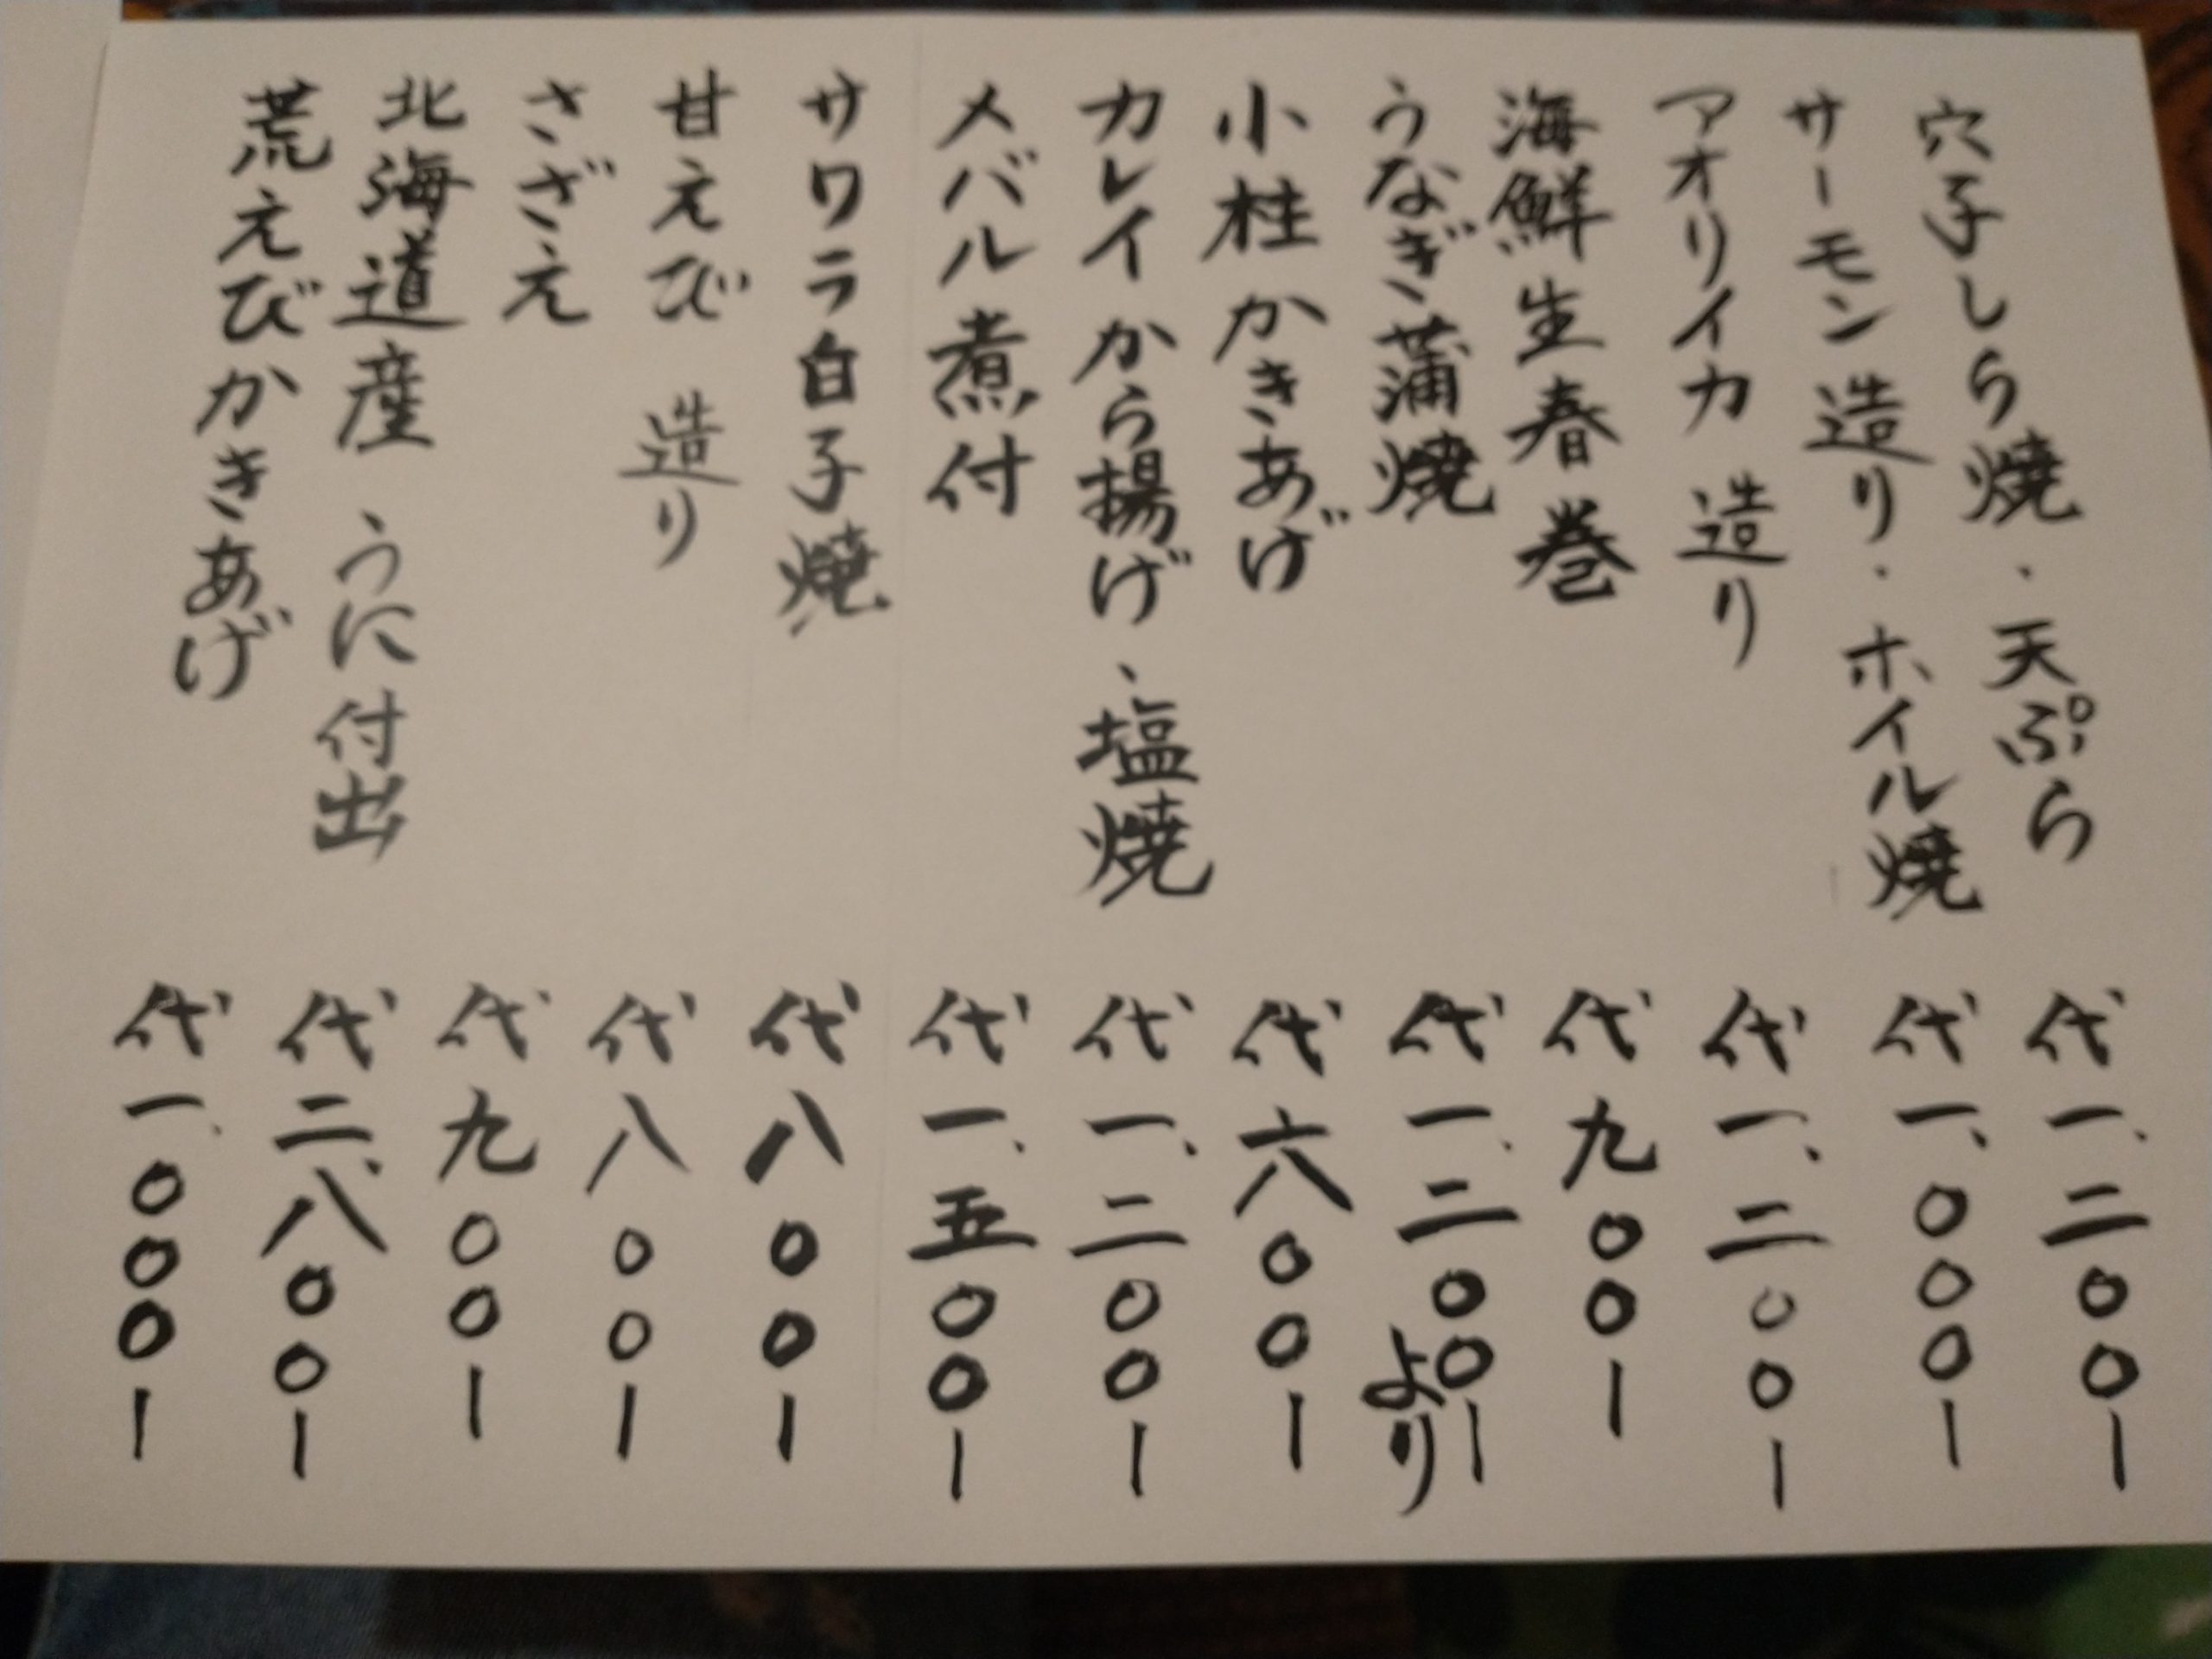 穴子しら焼・天ぷら 代一、二00ー
サーモン造り・ホイル焼 代一、000ー
アオリイカ 造り 代一、二00ー
海鮮生春巻 代九00ー
うなぎ蒲焼 代一、二00ーより
小柱かきあげ 代六00ー
カレイから揚げ、塩焼 代一、二00ー
メバル煮付 代一、五00ー
サワラ白子焼 代八00ー
甘えび 造り 代八00ー
さざえ 代九00ー
北海道産 うに付出 代二、八00ー
荒えびかきあげ 代一、000ー